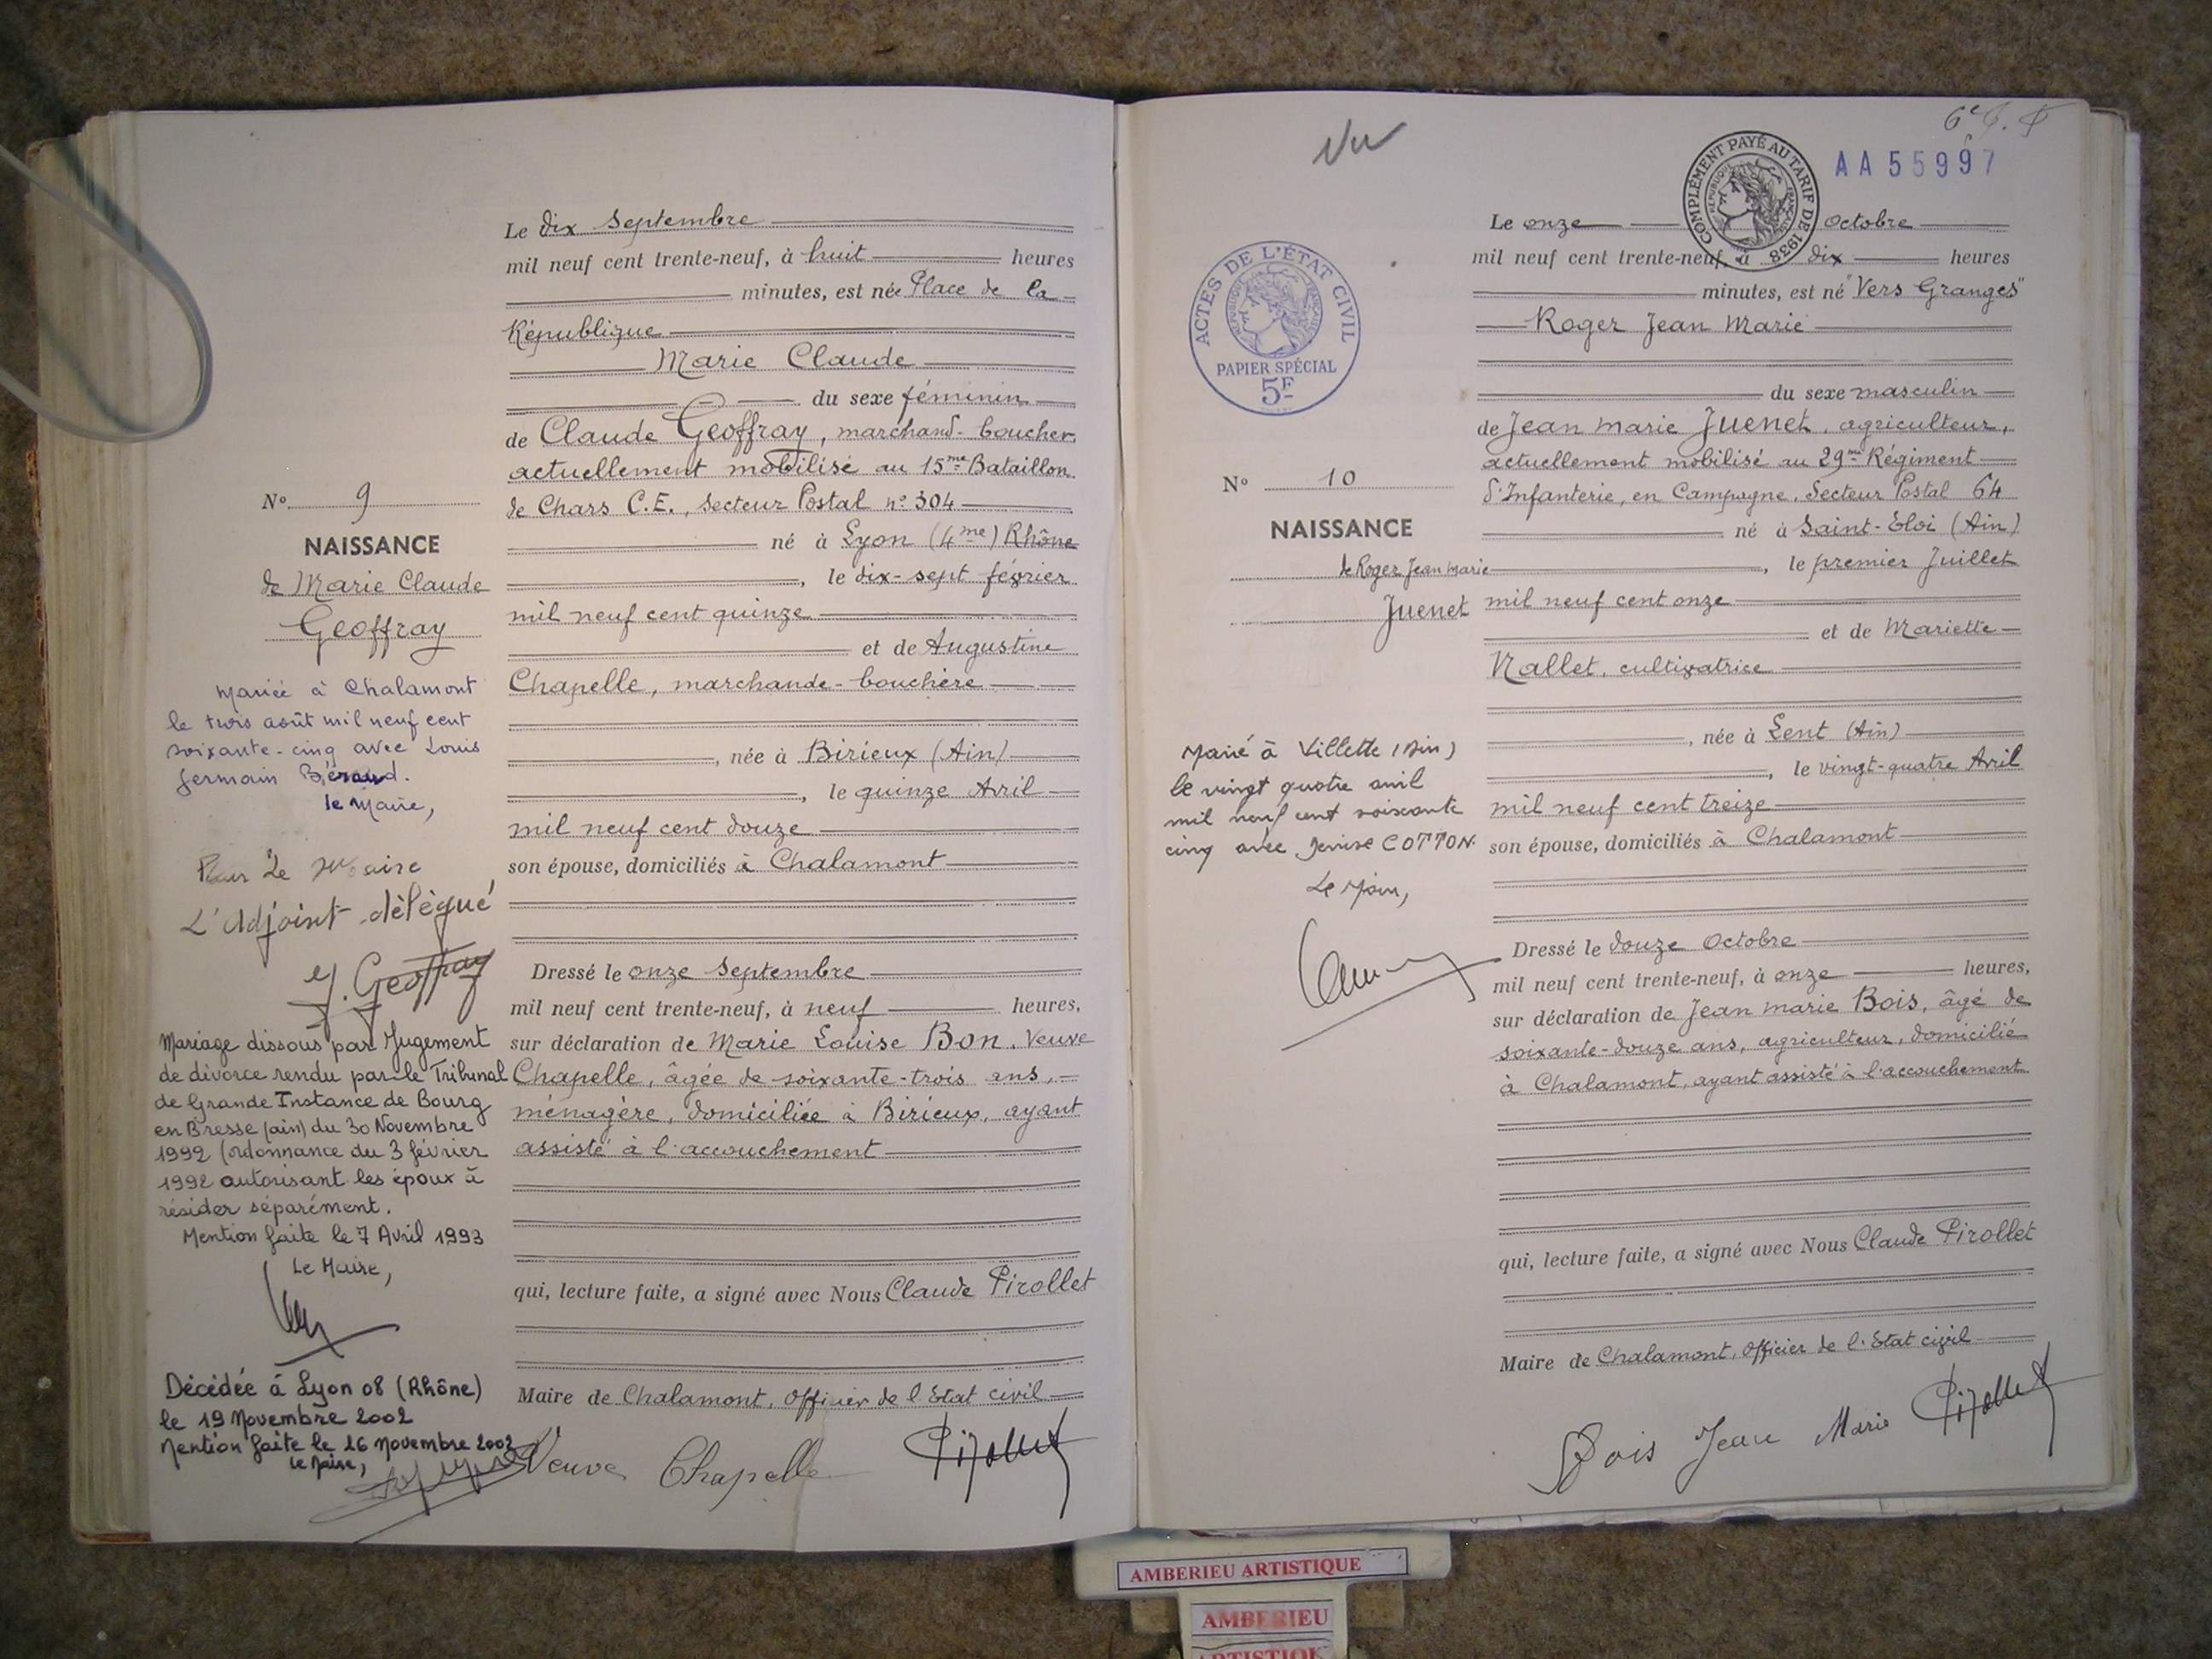 Le dix Septembre
mil neuf cent trente-neuf, à huit heures
minutes, est née Place de la
République
Marie Claude
du sexe féminin
de Claude Geoffray, marchand-boucher,
actuellement mobilisé au 15me Bataillon
de Chars C.E., Secteur Postal n° 304
né à Lyon (4me) Rhône
, le dix-sept février
mil neuf cent quinze
et de Augustine
Chapelle, marchande-bouchère
, née à Birieux (Ain)
, le quinze Avril
mil neuf cent douze
son épouse, domiciliés à Chalamont
Dressé le onze Septembre
mil neuf cent trente-neuf, à neuf heures,
sur déclaration de Marie Louise Bon, Veuve
Chapelle, âgée de soixante-trois ans,
ménagère, domiciliée à Birieux, ayant
assisté à l'accouchement
qui, lecture faite, a signé avec Nous Claude Pirollet
Maire de Chalamont, Officier de l'Etat civil
Veuve Chapelle Pirollet
N° 9
NAISSANCE
de Marie Claude
Geoffray
Mariée à Chalamont
le trois août mil neuf cent
soixante-cinq avec Louis
Germain Béraud.
le Maire,
Pour Le Maire
L'Adjoint délégué
J. Geoffray
Mariage dissous par Jugement
de divorce rendu par le Tribunal
de Grande Instance de Bourg
en Bresse (ain) du 30 Novembre
1992 (ordonnance du 3 février
1992 autorisant les époux à
résider séparément.
Mention faite le 7 Avril 1993
Le Maire,
Décédée à Lyon 08 (Rhône)
le 19 Novembre 2002
Mention faite le 26 Novembre 2002
Le Maire,
Vu
AA 55997
COMPLÉMENT PAYÉ AU TARIF DE 1938
RÉPUBLIQUE FRANÇAISE
ACTES DE L'ÉTAT CIVIL
RÉPUBLIQUE FRANÇAISE
PAPIER SPÉCIAL
5F
Le onze Octobre
mil neuf cent trente-neuf, à dix heures
minutes, est né "Vers Granges"
Roger Jean Marie
du sexe masculin
de Jean Marie Juenet, agriculteur,
actuellement mobilisé au 29me Régiment
d'Infanterie, en Campagne, Secteur Postal 64
né à Saint-Eloi (Ain)
, le premier Juillet
mil neuf cent onze
et de Mariette
Nallet, cultivatrice
, née à Lent (Ain)
, le vingt-quatre Avril
mil neuf cent treize
son épouse, domiciliés à Chalamont
Dressé le douze Octobre
mil neuf cent trente-neuf, à onze heures,
sur déclaration de Jean Marie Bois, âgé de
soixante-douze ans, agriculteur, domicilié
à Chalamont, ayant assisté à l'accouchement
qui, lecture faite, a signé avec Nous Claude Pirollet
Maire de Chalamont, Officier de l'Etat civil
Bois Jean Marie Pirollet
N° 10
NAISSANCE
de Roger Jean Marie
Juenet
Marié à Villette (Ain)
le vingt quatre avril
mil neuf cent soixante
cinq avec Denise COTTON.
Le Maire,
AMBERIEU ARTISTIQUE
AMBERIEU
ARTISTIQUE